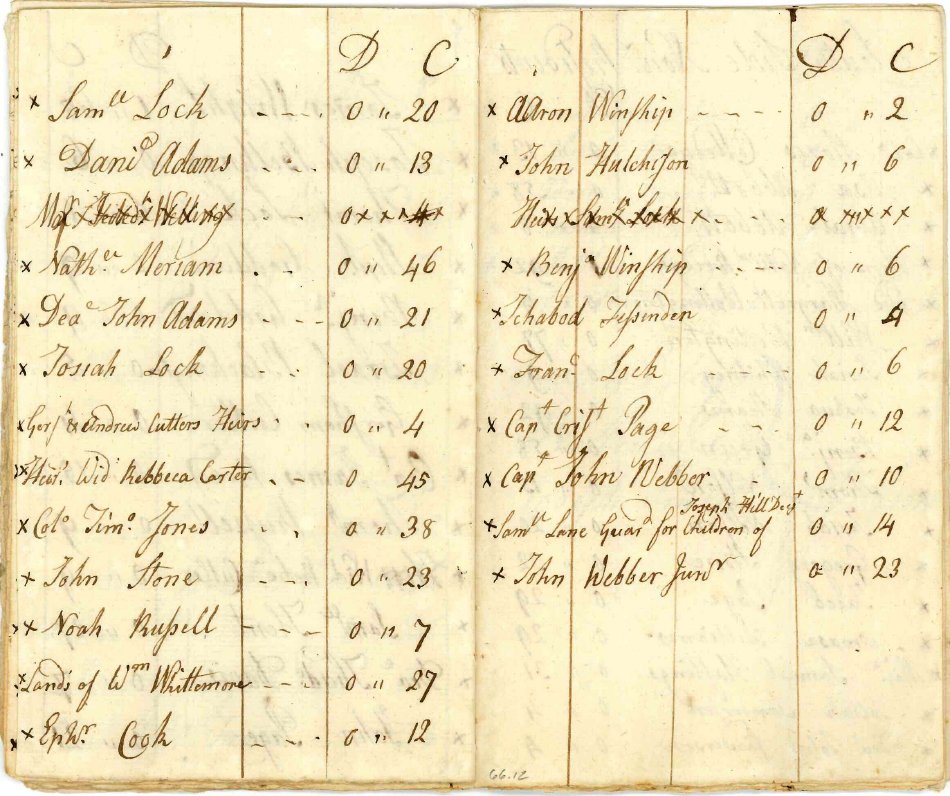 D C
x Sam.ll Lock - - - 0 " 20
x Dani.l Adams - - - 0 " 13
0 x x x 4 x
x Nath.ll Meriam - - 0 " 46
x Dea.c John Adams - - - 0 " 21
x Josiah Lock - - - 0 " 20
x Gers.h & Andrew Cutters Heirs - - 0 " 4
x Heirs. Wid.o Rebbeca Carter - - 0 45
x Col.o Tim.o Jones - - 0 " 38
x John Stone - - - 0 " 23
x Noah Russell - - - 0 " 7
x Lands of W.m Whittemore - - - 0 " 27
x Eph.r Cook - - - 0 " 12
D C
x AAron Winship - - - - 0 " 2
x John Hutchison 0 " 6
Heirs x Lock x x - - - 0 x x x x
x Benj.a Winship - - - - 0 " 6
x Ichabod Fessinden 0 " 4
x Fran.s Lock - - - 0 " 6
x Cap.t Cris.t Page - - - 0 " 12
x Cap.t John Webber - - 0 " 10
Joseph Hill Des.t
x Sam.ll Lane Guar.d for Children of 0 " 14
x John Webber Jun.r - - - 0 " 23
66.12